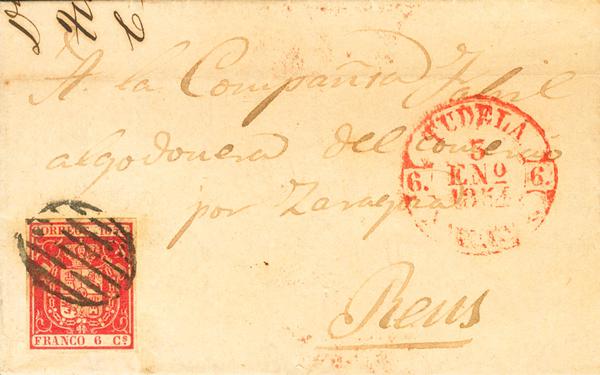 A. la Compañia Fabril
algodonera del comercio
por Zaragoza
Reus
TUDELA
5
ENO
1854
6. 6.
CORREOS 1854
FRANCO 6 Cs